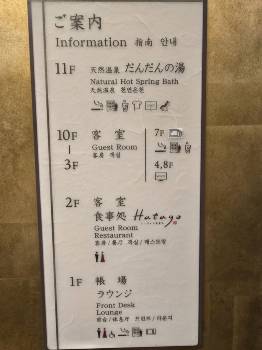 ご案内
Information 指南 안내
11F 天然温泉 だんだんの湯
Natural Hot Spring Bath
天然温泉 천연온천
10F 客室 7F
Guest Room
客房 객실
3F 4,8F
2F 客室
食事処 Hatago
Guest Room
Restaurant
客房/餐厅 객실/레스토랑
1F 帳場
ラウンジ
Front Desk
Lounge